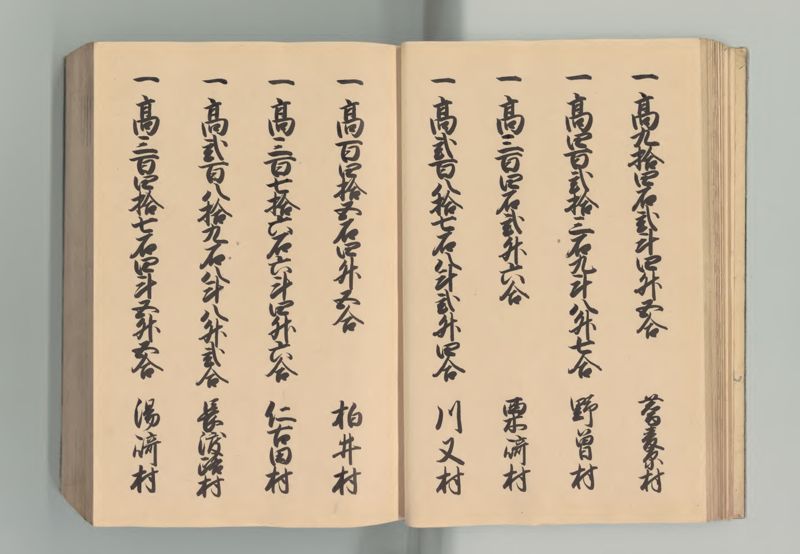 一 高九拾四石弐斗四升五合 蕎麦原村
一 高四百弐拾三石九斗八升七合 野曽村
一 高三百四石弐升六合 栗崎村
一 高弐百八拾七石八斗弐升四合 川又村
一 高百四拾五石四升五合 柏井村
一 高三百七拾六石六斗四升六合 仁古田村
一 高弐百八拾九石八斗八升弐合 長渡路村
一 高三百四拾七石四斗五升五合 湯崎村